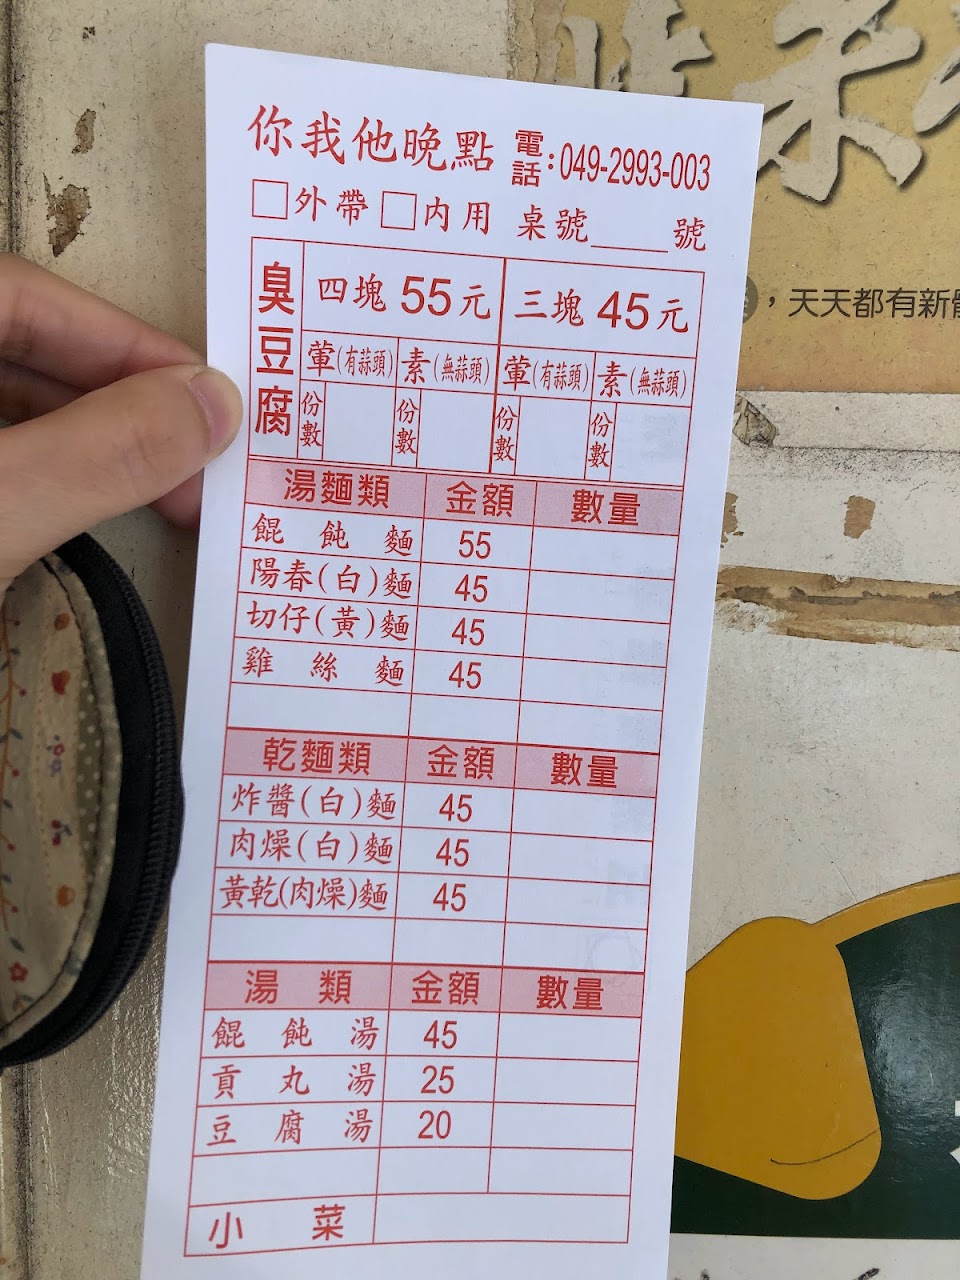 你我他晚點 電話:049-2993-003
□外帶 □內用 桌號____號
臭豆腐
四塊 55元 三塊 45元
葷(有蒜頭) 素(無蒜頭) 葷(有蒜頭) 素(無蒜頭)
份數 份數 份數 份數
湯麵類 金額 數量
餛飩麵 55
陽春(白)麵 45
切仔(黃)麵 45
雞絲麵 45
乾麵類 金額 數量
炸醬(白)麵 45
肉燥(白)麵 45
黃乾(肉燥)麵 45
湯類 金額 數量
餛飩湯 45
貢丸湯 25
豆腐湯 20
小菜
，天天都有新